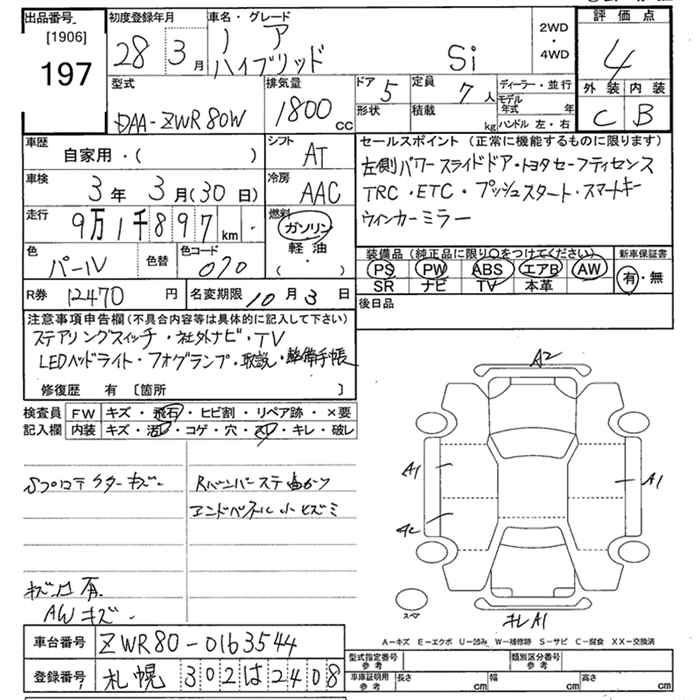 出品番号
[1906]
197
初度登録年月
28年3月
車名・グレード
ノア
ハイブリッド Si
2WD
・
4WD
評価点
4
外装 内装
C B
型式
DAA-ZWR80W
排気量
1800 cc
ドア 5
形状
定員 7人
積載 kg
ディーラー・並行
モデル年式 年
ハンドル 左・右
車歴
自家用・( )
シフト
AT
車検
3年3月(30日)
冷房
AAC
走行
9万1千897km
燃料
ガソリン
・
軽油
( ・ )
色
パール
色替
色コード
070
R券 12470円
名変期限 10月3日
セールスポイント(正常に機能するものに限ります)
左側パワースライドドア・トヨタセーフティセンス
TRC・ETC・プッシュスタート・スマートキー
ウィンカーミラー
装備品(純正品に限り○をつけてください)
PS PW ABS エアB AW
SR ナビ TV 本革
新車保証書
有・無
後日品
注意事項申告欄(不具合内容等は具体的に記入して下さい)
ステアリングスイッチ・社外ナビ・TV
LEDヘッドライト・フォグランプ・取説・整備手帳
修復歴 有 〔箇所 〕
検査員
記入欄
FW キズ・飛石・ヒビ割・リペア跡・×要
内装 キズ・汚レ・コゲ・穴・スレ・キレ・破レ
Sプロテクターキズ
Rバンパーステ
エンドパネル小ヒズミ
キズ凹有
AWキズ
A2
A1
A1
A2
スペア
キレA1
A-キズ E-エクボ U-凹み W-補修跡 S-サビ C-腐食 XX-交換済
車台番号 ZWR80-0163544
登録番号 札幌 302は2408
型式指定番号
参考
類別区分番号
参考
車庫証明用
参考
長さ cm
幅 cm
高さ cm